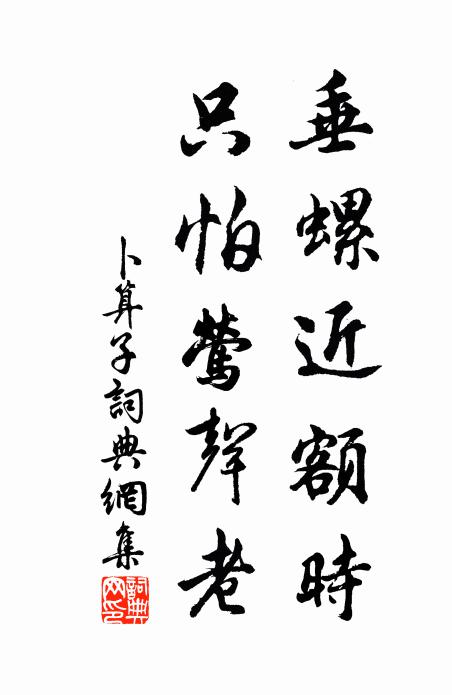 垂螺近額時
只怕鶯聲老
卜算子詞典網集
詞典網印